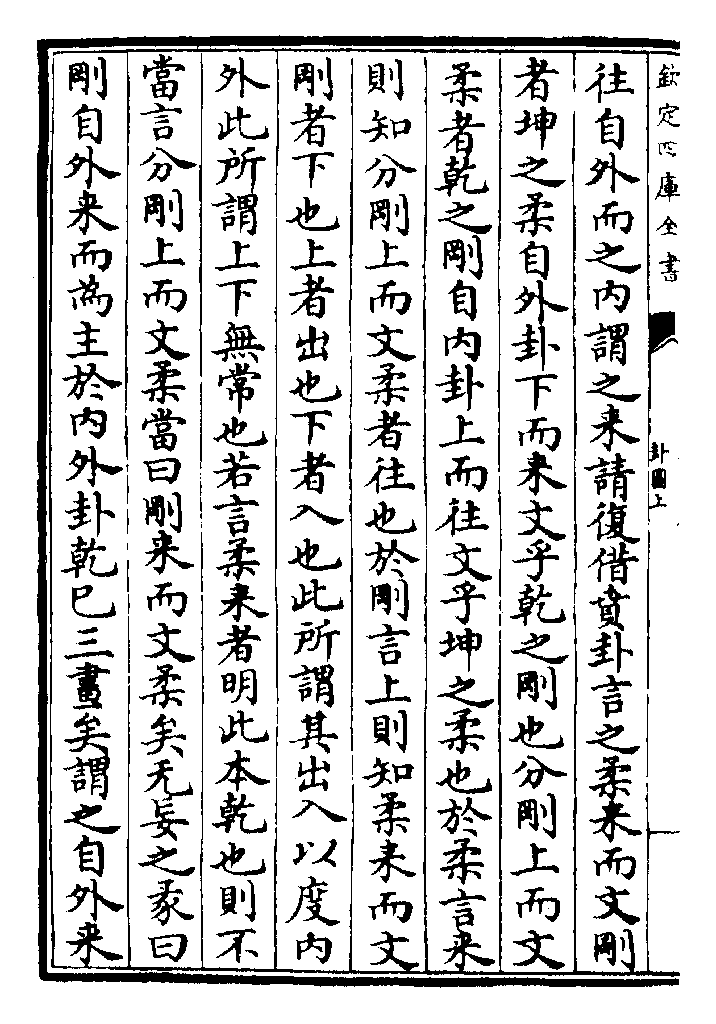 欽定四庫全書
卦圖上
往自外而之内謂之来請復借賁卦言之柔来而文剛
者坤之柔自外卦下而来文乎乾之剛也分剛上而文
柔者乾之剛自内卦上而往文乎坤之柔也於柔言来
則知分剛上而文柔者往也於剛言上則知柔来而文
剛者下也上者出也下者入也此所謂其出入以度内
外此所謂上下無常也若言柔来者明此本乾也則不
當言分剛上而文柔當曰剛来而文柔矣无妄之彖曰
剛自外来而為主於内外卦乾巳三畫矣謂之自外来